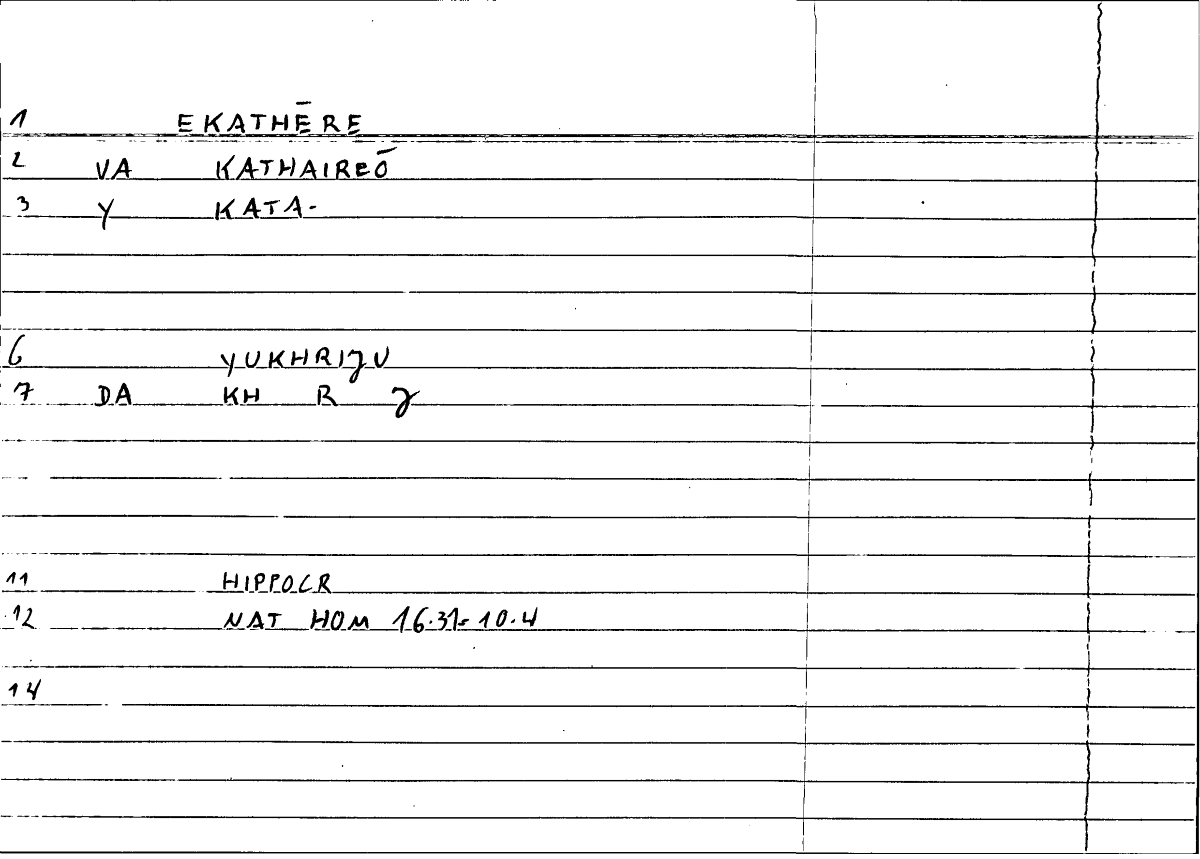 1 EKATHĒRE
2 VA KATHAIREŌ
3 Y KATA-
6 YUKHRIJU
7 DA KH R J
11 HIPPOCR
12 NAT HOM 16.31-10.4
14